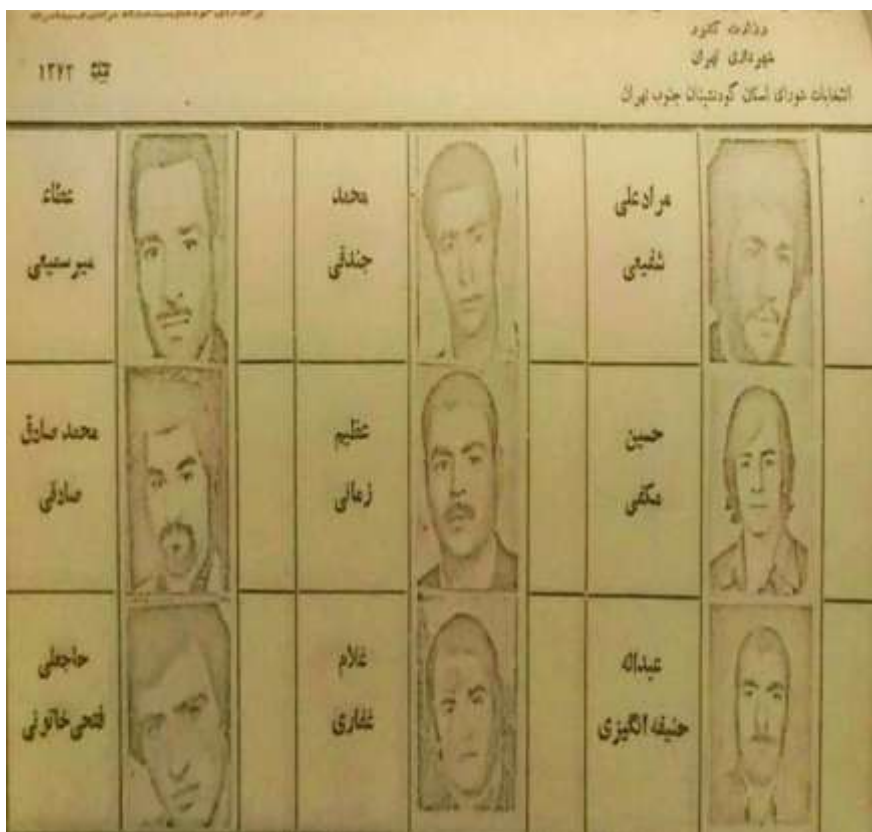 وزارت کشور
شهرداری تهران
انتخابات شورای اسکان گودنشینان جنوب تهران
۱۳۶۳
مراد علی
شفیعی
محمد
جندقی
عطاء
میر سمیعی
حسین
مکفی
عظیم
زمانی
محمد صادق
صادقی
عبداله
حنیفه انگیزی
غلام
غفاری
حاجعلی
فتحی خاتونی